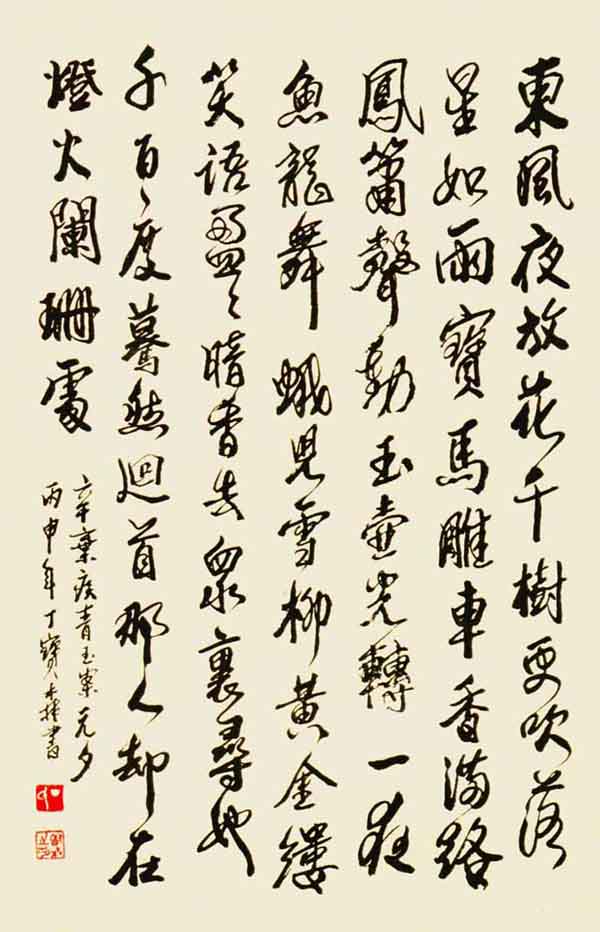 東風夜放花千樹更吹落
星如雨寶馬雕車香滿路
鳳簫聲動玉壺光轉一夜
魚龍舞蛾兒雪柳黃金縷
笑語盈々暗香去衆裏尋她
千百々度驀然迴首那人却在
燈火闌珊處
辛棄疾青玉案元夕
丙申年丁寶書